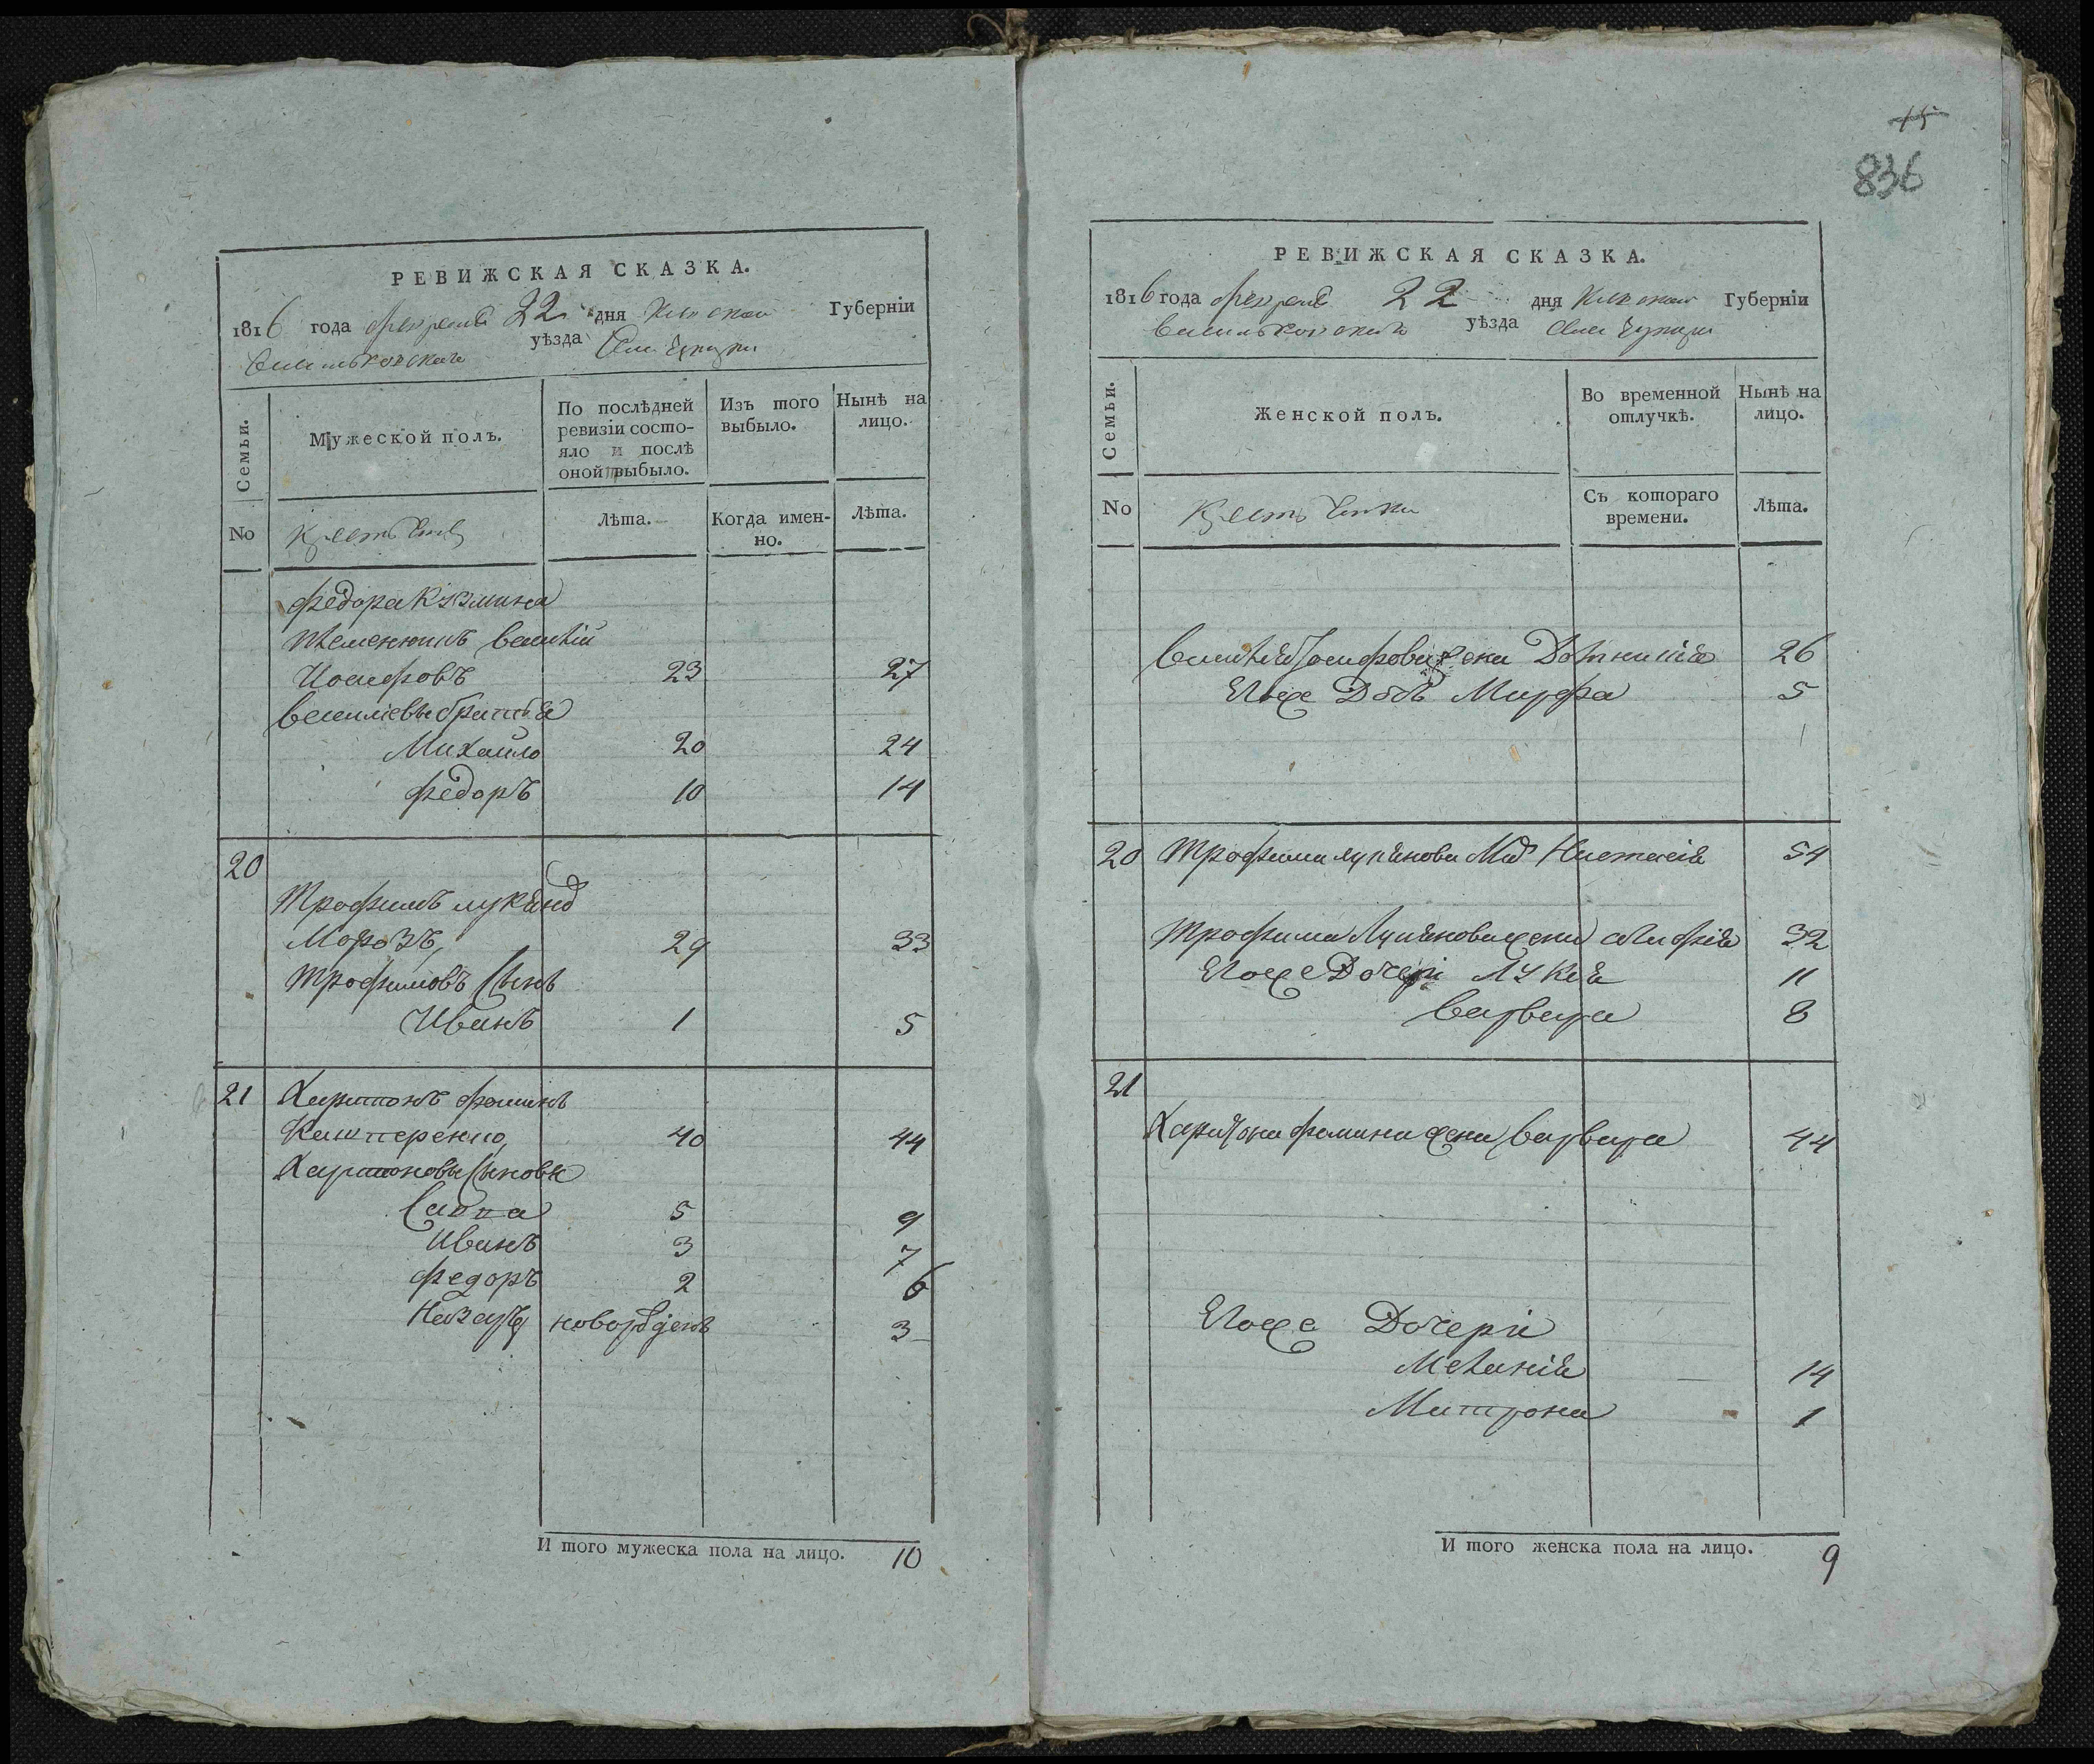 РЕВИЖСКАЯ СКАЗКА.
1816 года февраля 22 дня Киевской Губернiи
Васильковскаго уѣзда Села
Семьи.
Мужеской полъ.
По послѣдней ревизiи состо-
яло и послѣ
оной выбыло.
Изъ того
выбыло.
Нынѣ на
лицо.
No
Крестьяне
Лѣта.
Когда имен-
но.
Лѣта.
Федора Кузмина
племенникъ василiй
Иосифовъ 23 27
василiевы братья
Михайло 20 24
Федоръ 10 14
20
Трофимъ лукянов
Морозъ, 29 33
Трофимовъ Сынъ
Иванъ 1 5
21 Харитонъ фоминъ
40 44
Харитоновы Сыновья
Савва 5 9
Иванъ 3 7
Федоръ 2 6
Назаръ новорожденъ 3
И того мужеска пола на лицо. 10
15
836
РЕВИЖСКАЯ СКАЗКА.
1816 года февраля 22 дня Киевской Губернiи
Васильковскаго уѣзда Села
Семьи.
Женской полъ.
Во временной
отлучкѣ.
Нынѣ на
лицо.
No
Крестьянки
Съ котораго
времени.
Лѣта.
Василия Иосифова жена 26
Егоже Дочь Марфа 5
20 Трофима лукянова Анастасiя 54
Трофима Лукянова жена 32
Егоже Дочери Лукия 11
Варвара 8
21
Харитона фомина жена варвара 44
Егоже Дочери
Меланiя 14
Матрона 1
И того женска пола на лицо. 9